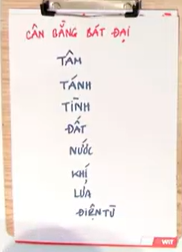 CÂN BẰNG BÁT ĐẠI
TÂM
TÁNH
TĨNH
ĐẤT
NƯỚC
KHÍ
LỬA
ĐIỆN TỪ